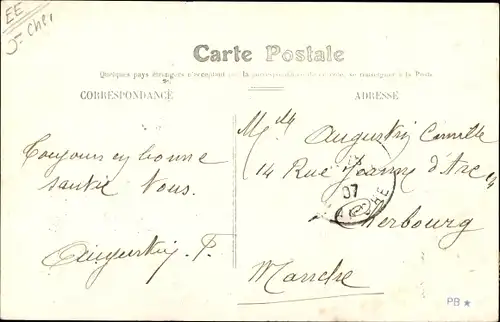 EE
Carte Postale
Quelques pays étrangers n'acceptent pas la correspondance de ce côté, se renseigner à la Poste
CORRESPONDANCE
ADRESSE
Toujours en bonne
santé Vous.
Augustin, P.
Mlle Augustin Camille
14 Rue Jeanne d'Arc 14
07
Cherbourg
Manche
PB